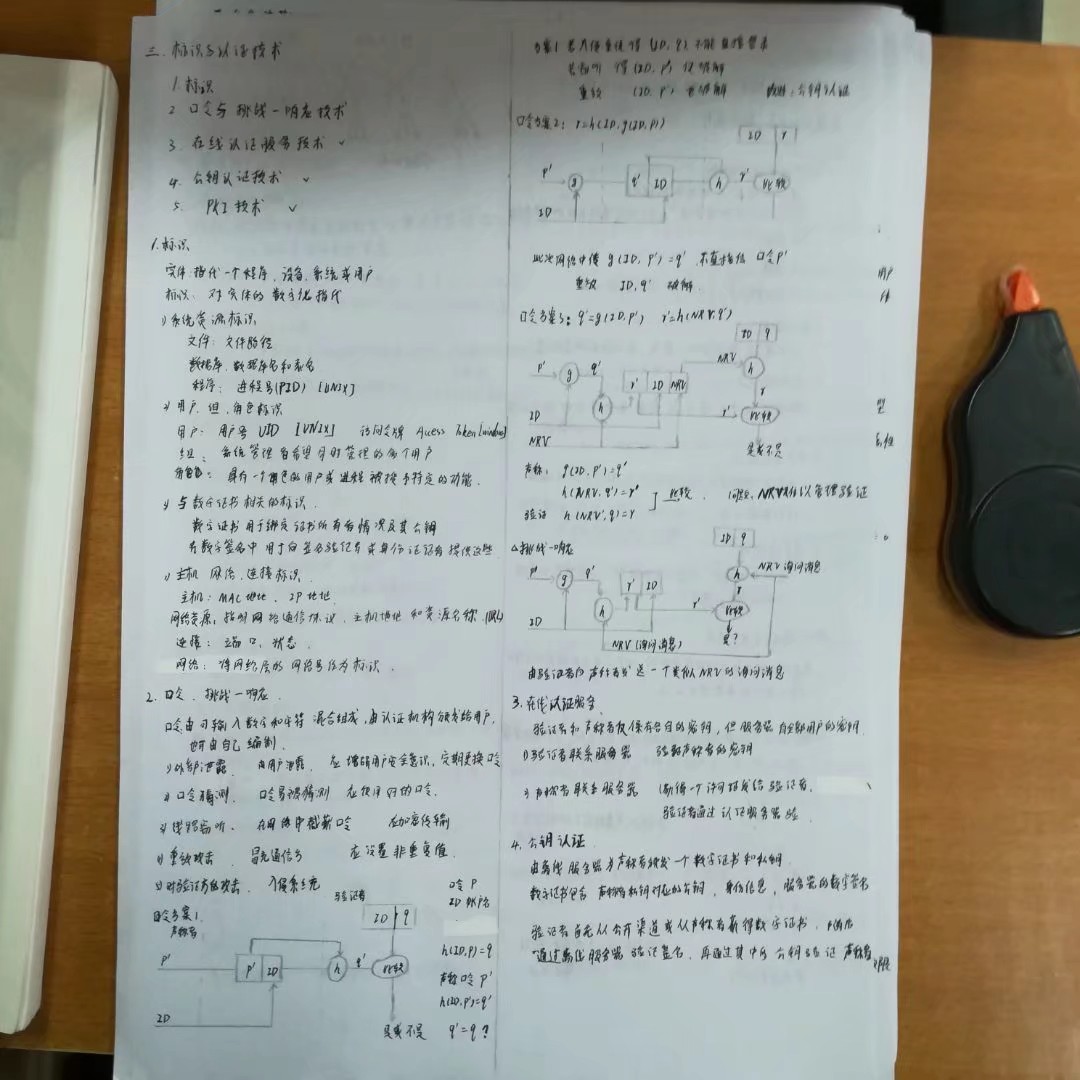 三. 标识与认证技术
1. 标识
2. 口令与挑战一响应技术
3. 在线认证服务技术 ✓
4. 公钥认证技术 ✓
5. PKI 技术 ✓
1. 标识
实体: 指代一个程序、设备、系统或用户
标识: 对实体的数字化指代
1) 系统资源标识
文件: 文件路径
数据库: 数据库名和表名
程序: 进程号(PID) [UNIX]
2) 用户、组、角色标识
用户: 用户号 UID [UNIX] 访问令牌 Access Token [windows]
组: 系统管理员希望同时管理的多个用户
角色: 具有一个角色的用户或进程被授予特定的功能.
3) 与数字证书相关的标识.
数字证书用于绑定证书所有者情况及其公钥
在数字签名中用于向签名验证者或身份认证者提供这些
主机 网络、连接标识.
主机: MAC地址、IP地址.
网络资源: 指明网络通信协议、主机地址和资源名称 (URL)
连接: 端口、状态.
网络: 将网络层的网络号作为标识.
2. 口令、挑战一响应.
口令由可输入数字和字符混合组成, 由认证机构颁发给用户,
也可由自己编制.
1) 外部泄露. 由用户泄露. 应增强用户安全意识, 定期更换口令
2) 口令猜测. 口令易被猜测 应使用好的口令.
3) 线路窃听. 在网络中截获口令 应加密传输
4) 重放攻击. 冒充通信号 应设置非重复值.
5) 对验证方的攻击. 入侵系统
口令方案1.
声称者 验证者 口令 P
ID 账户名
ID q
h(ID,P)=q
P' P' ID h q' 比较
声称口令 P'
h(ID,P')=q'
ID
是或不是 q'=q ?
方案1 若入侵系统得 (ID, q) 不能直接登录
若窃听 得 (ID, P') 任破解
重放 (ID, P') 也破解 改进: 公钥与认证
口令方案2: r=h(ID, g(ID,P))
ID r
P' g q' ID h r' 比较
ID
此次网络中传 g(ID, P')=q' 不直接传 口令P'
重放 ID, q' 破解.
口令方案3: q'=g(ID,P') r'=h(NRV,q')
ID q
NRV
P' g q' r' ID NRV h
h r
ID r' 比较
NRV 是或不是
声称: g(ID, P')=q'
h(NRV, q')=r' 比较.
验证 h(NRV', q)=r
△挑战一响应
ID q
P' g q' r' ID h NRV 询问消息
h r' r 比较
ID
NRV (询问消息) 是?
由验证者向声称者发送一个类似NRV的询问消息
3. 在线认证服务.
验证者和声称者仅保存各自的密钥, 但服务器有全部用户的密钥.
1) 验证者联系服务器 验证声称者的密钥
2) 声称者联系服务器 获得一个许可证发给验证者,
验证者通过认证服务器验.
4. 公钥认证.
由离线服务器为声称者颁发一个数字证书和私钥.
数字证书包含 声称者私钥对应的公钥, 身份信息, 服务器的数字签名
验证者首先从公开渠道或从声称者获得数字证书,
通过离线服务器验证签名, 再通过其中的公钥验证 声称者